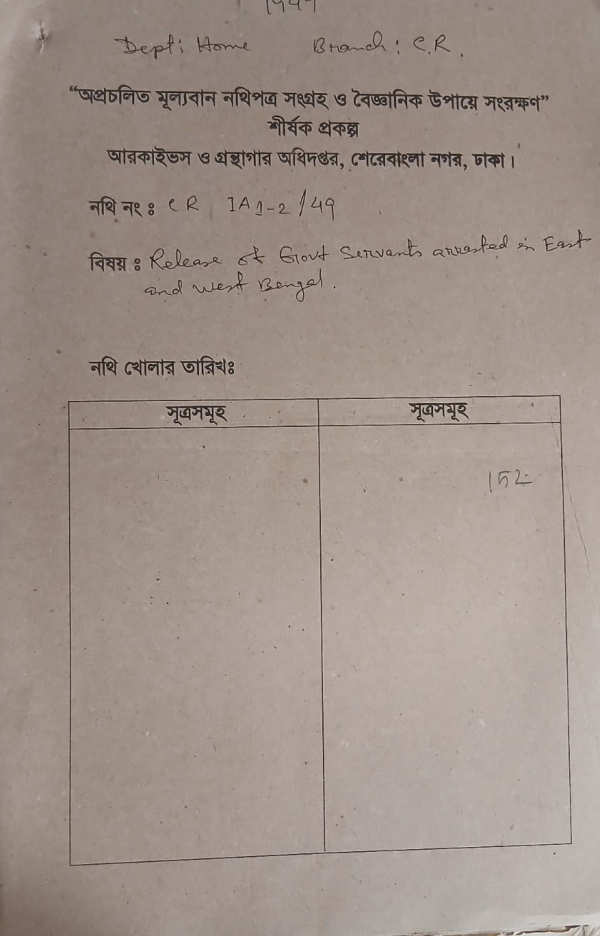 Dept: Home Branch: C.R.
“অপ্রচলিত মূল্যবান নথিপত্র সংগ্রহ ও বৈজ্ঞানিক উপায়ে সংরক্ষণ”
শীর্ষক প্রকল্প
আরকাইভস ও গ্রন্থাগার অধিদপ্তর, শেরেবাংলা নগর, ঢাকা।
নথি নং ঃ CR IA 1-2/49
বিষয় ঃ Release of Govt Servants arrested in East
and West Bengal.
নথি খোলার তারিখঃ
সূত্রসমূহ সূত্রসমূহ
152